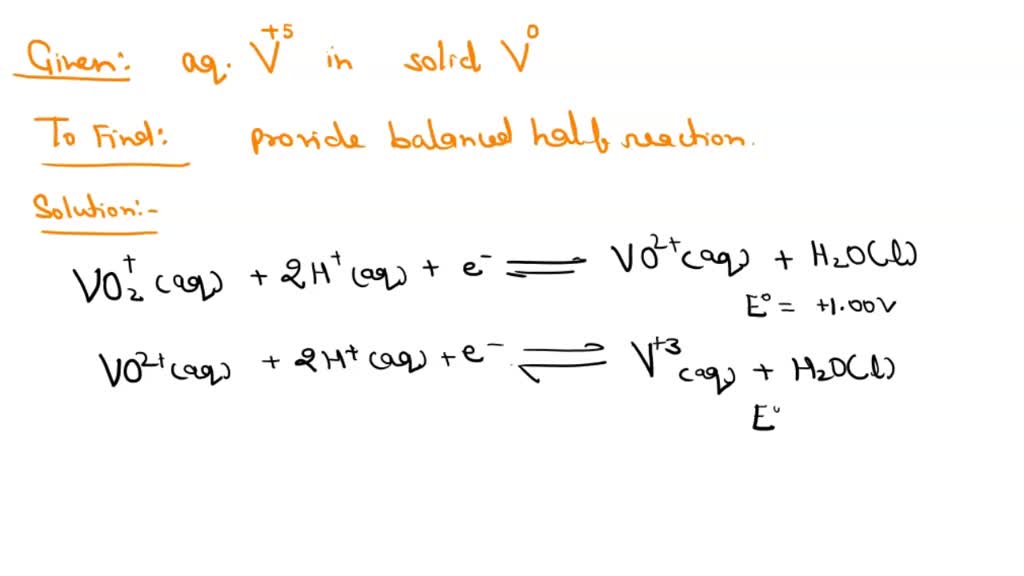 Given: aq. V⁺⁵ in solid V⁰
To Find: provide balanced half reaction.
Solution:-
VO₂⁺ (aq) + 2H⁺ (aq) + e⁻ ⇌ VO²⁺ (aq) + H₂O(l)
E° = +1.00V
VO²⁺ (aq) + 2H⁺ (aq) + e⁻ ⇌ V⁺³ (aq) + H₂O(l)
E°